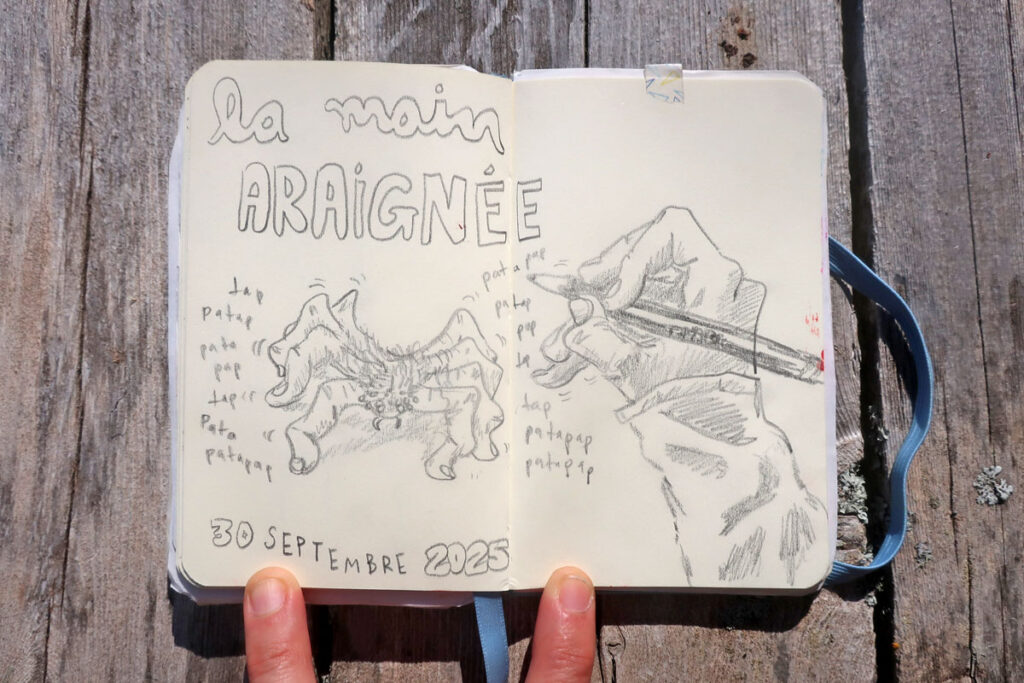 la main
ARAiGNÉE
tap
patap
pata
pap
tap
Pata
patapap
patapap
patap
pap
ta
tap
patapap
patapap
30 SEPTEMBRE 2025